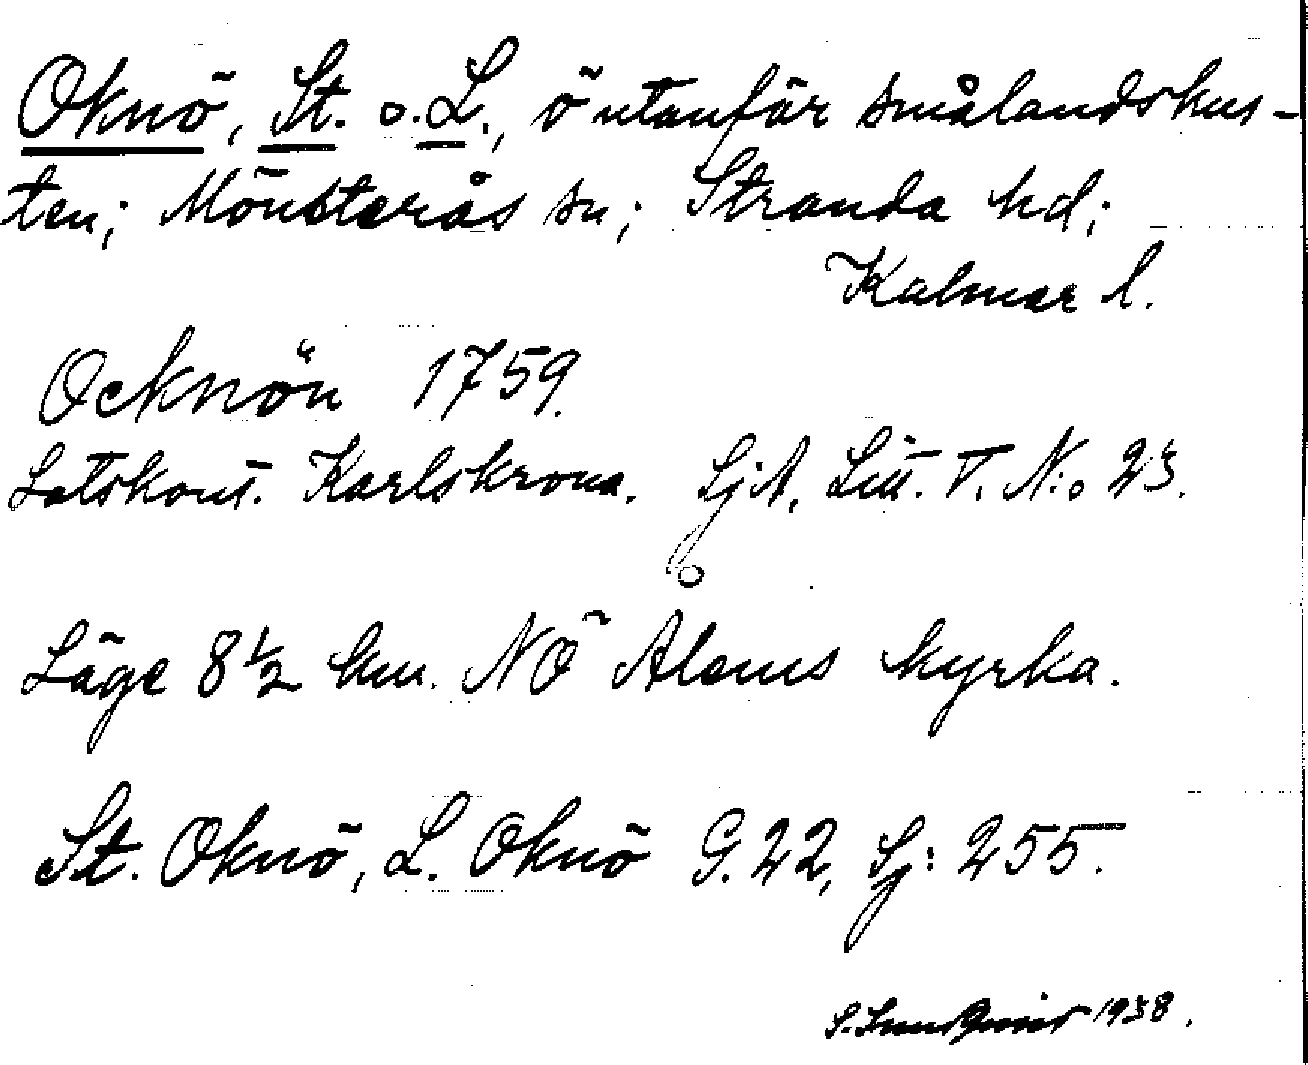 Oknö, St. o. L., ö utanför smålandskus-
ten; Mönsterås sn; Stranda hd;
Kalmar l.
Ocknön 1759.
Lotskont. Karlskrona. SjA, Litt. T. N:o 23.
Läge 8½ km. NÖ Ålems kyrka.
St. Oknö, L. Oknö G. 22, Sj: 255.
1938.